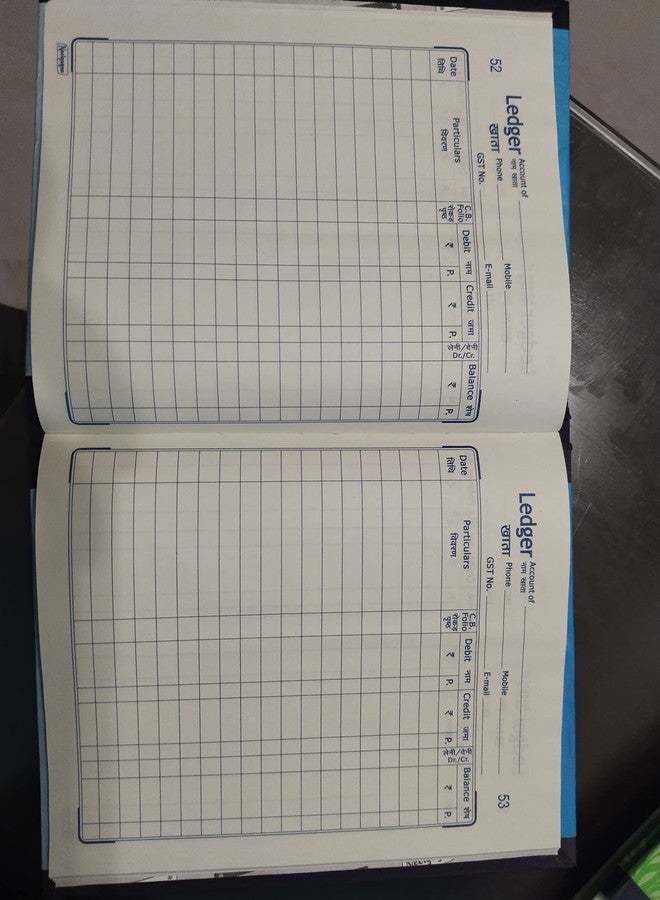 52
Ledger Account of
खाता नाम खाता
Phone Mobile
GST No. E-mail
Date Particulars C.B. Folio Debit नाम Credit जमा लेनी/देनी Dr./Cr. Balance शेष
तिथि विवरण रोकड़ पृष्ठ ₹ P. ₹ P. ₹ P.
Navlogyan
53
Ledger Account of
खाता नाम खाता
Phone Mobile
GST No. E-mail
Date Particulars C.B. Folio Debit नाम Credit जमा लेनी/देनी Dr./Cr. Balance शेष
तिथि विवरण रोकड़ पृष्ठ ₹ P. ₹ P. ₹ P.